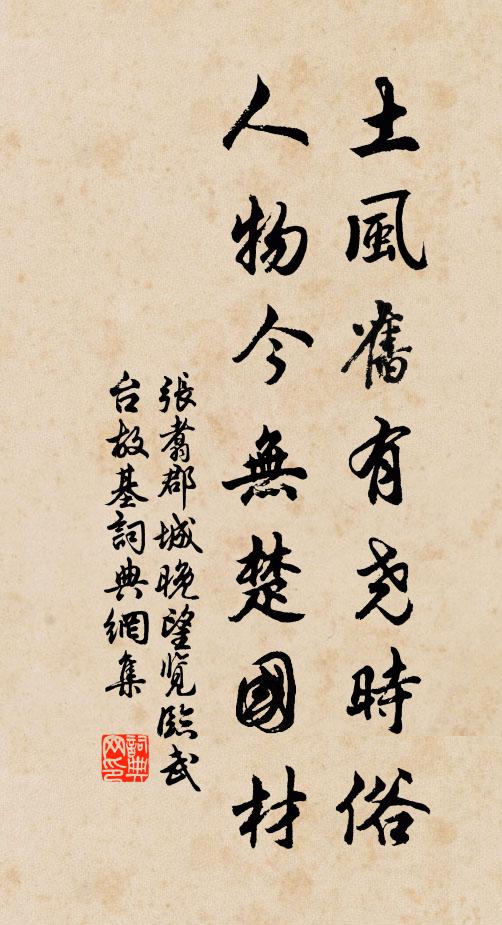 土風舊有尧時俗
人物今無楚國材
張翥郡城晚望览臨武
台故基詞典網集
詞典网印